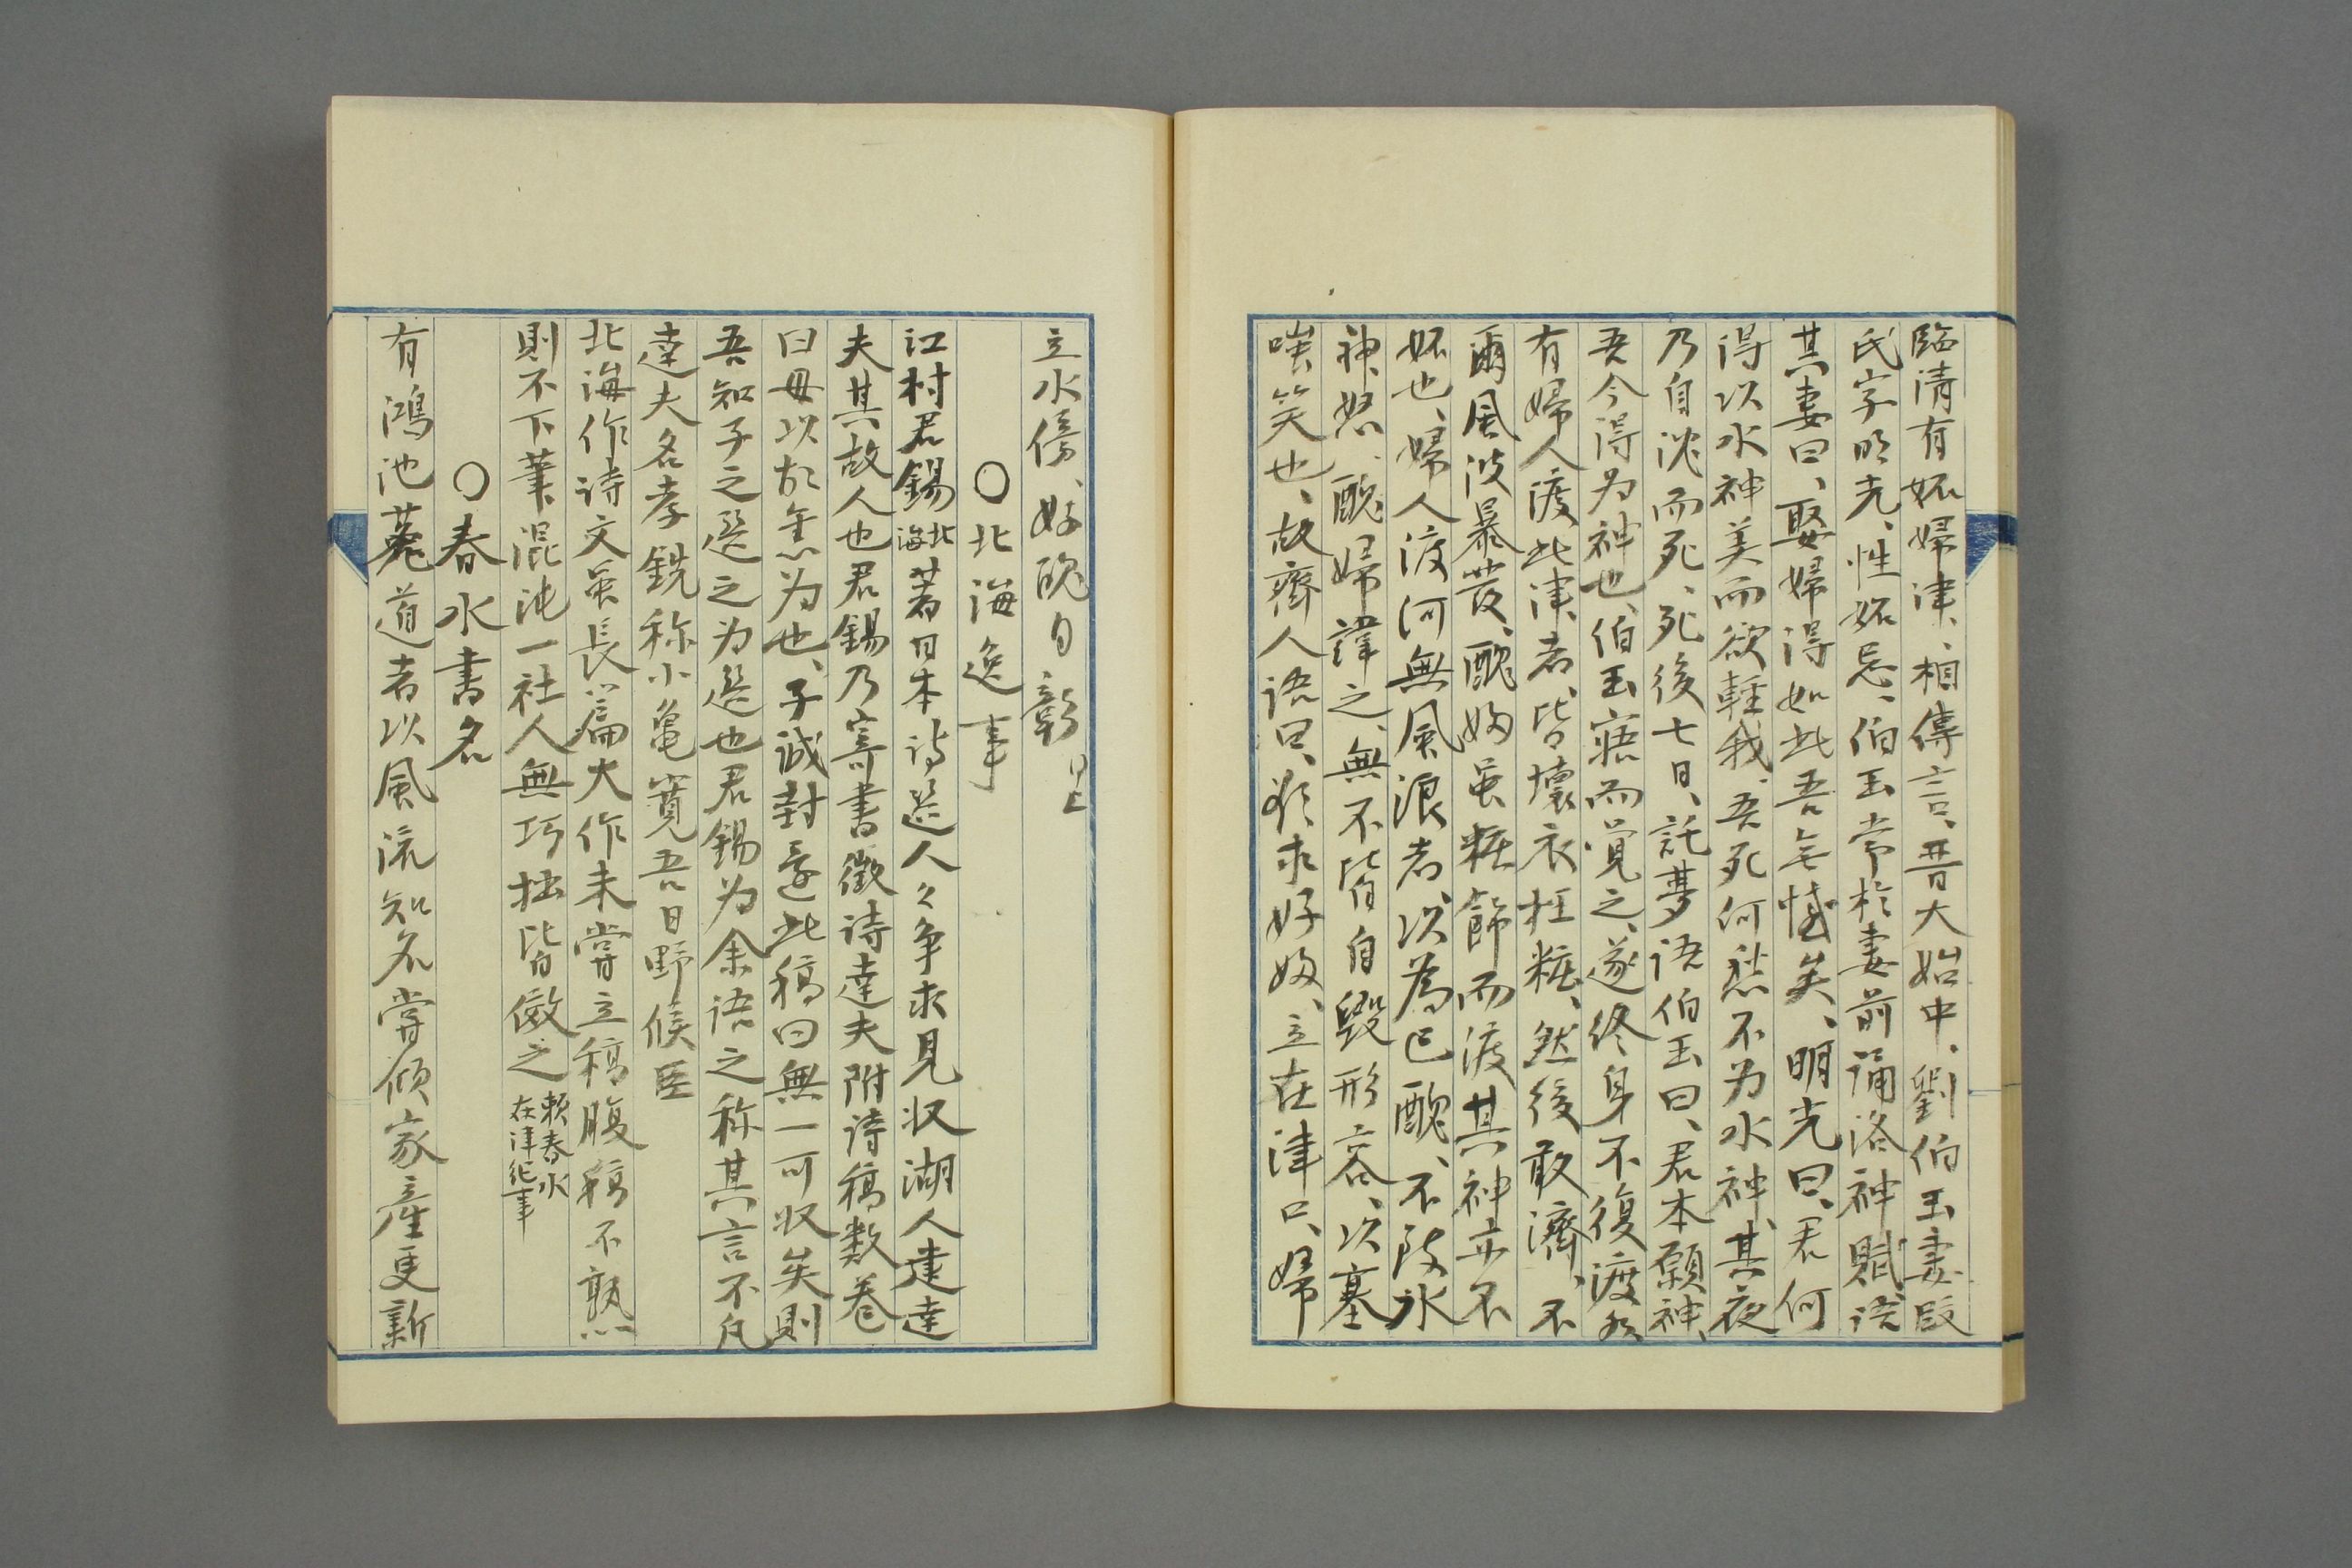 臨清有妬婦津、相傳言、晋大始中、劉伯玉妻段
氏字明光、性妬忌、伯玉常於妻前誦洛神賦、語
其妻曰、娶婦得如此吾無憾矣、明光曰、君何
得以水神美而欲軽我、吾死何愁不为水神、其夜
乃自沈而死、死後七日、託夢語伯玉曰、君本願神、
吾今得为神也、伯玉寤而覚之、遂終身不復渡水
有婦人渡此津者、皆壞衣枉粧、然後敢濟、不
爾風波暴發、醜婦虽粧飾而渡其神亦不
妬也、婦人渡河無風浪者、以為己醜、不致水
神怒、醜婦諱之、無不皆自毀形容、以塞
嗤笑也、故齊人語曰、欲求好婦、立在津口、婦
立水傍、好醜自彰
〇北海逸事
江村君錫北海著日本詩選人々争求見收湖人達達
夫其故人也君錫乃寄書徵詩達夫附詩稿数卷
曰毋以故意为也、子誠封還此稿曰無一可收矣則
吾知子之選之为選也君錫为余語之称其言不凡
達夫名孝銑称小亀寛吾日野侯臣
北海作詩文虽長篇大作未嘗立稿腹稿不熟
則不下筆混沌一社人無巧拙皆倣之 頼春水在津紀事
〇春水書名
有鴻池菟道者以風流知名嘗傾家産更新